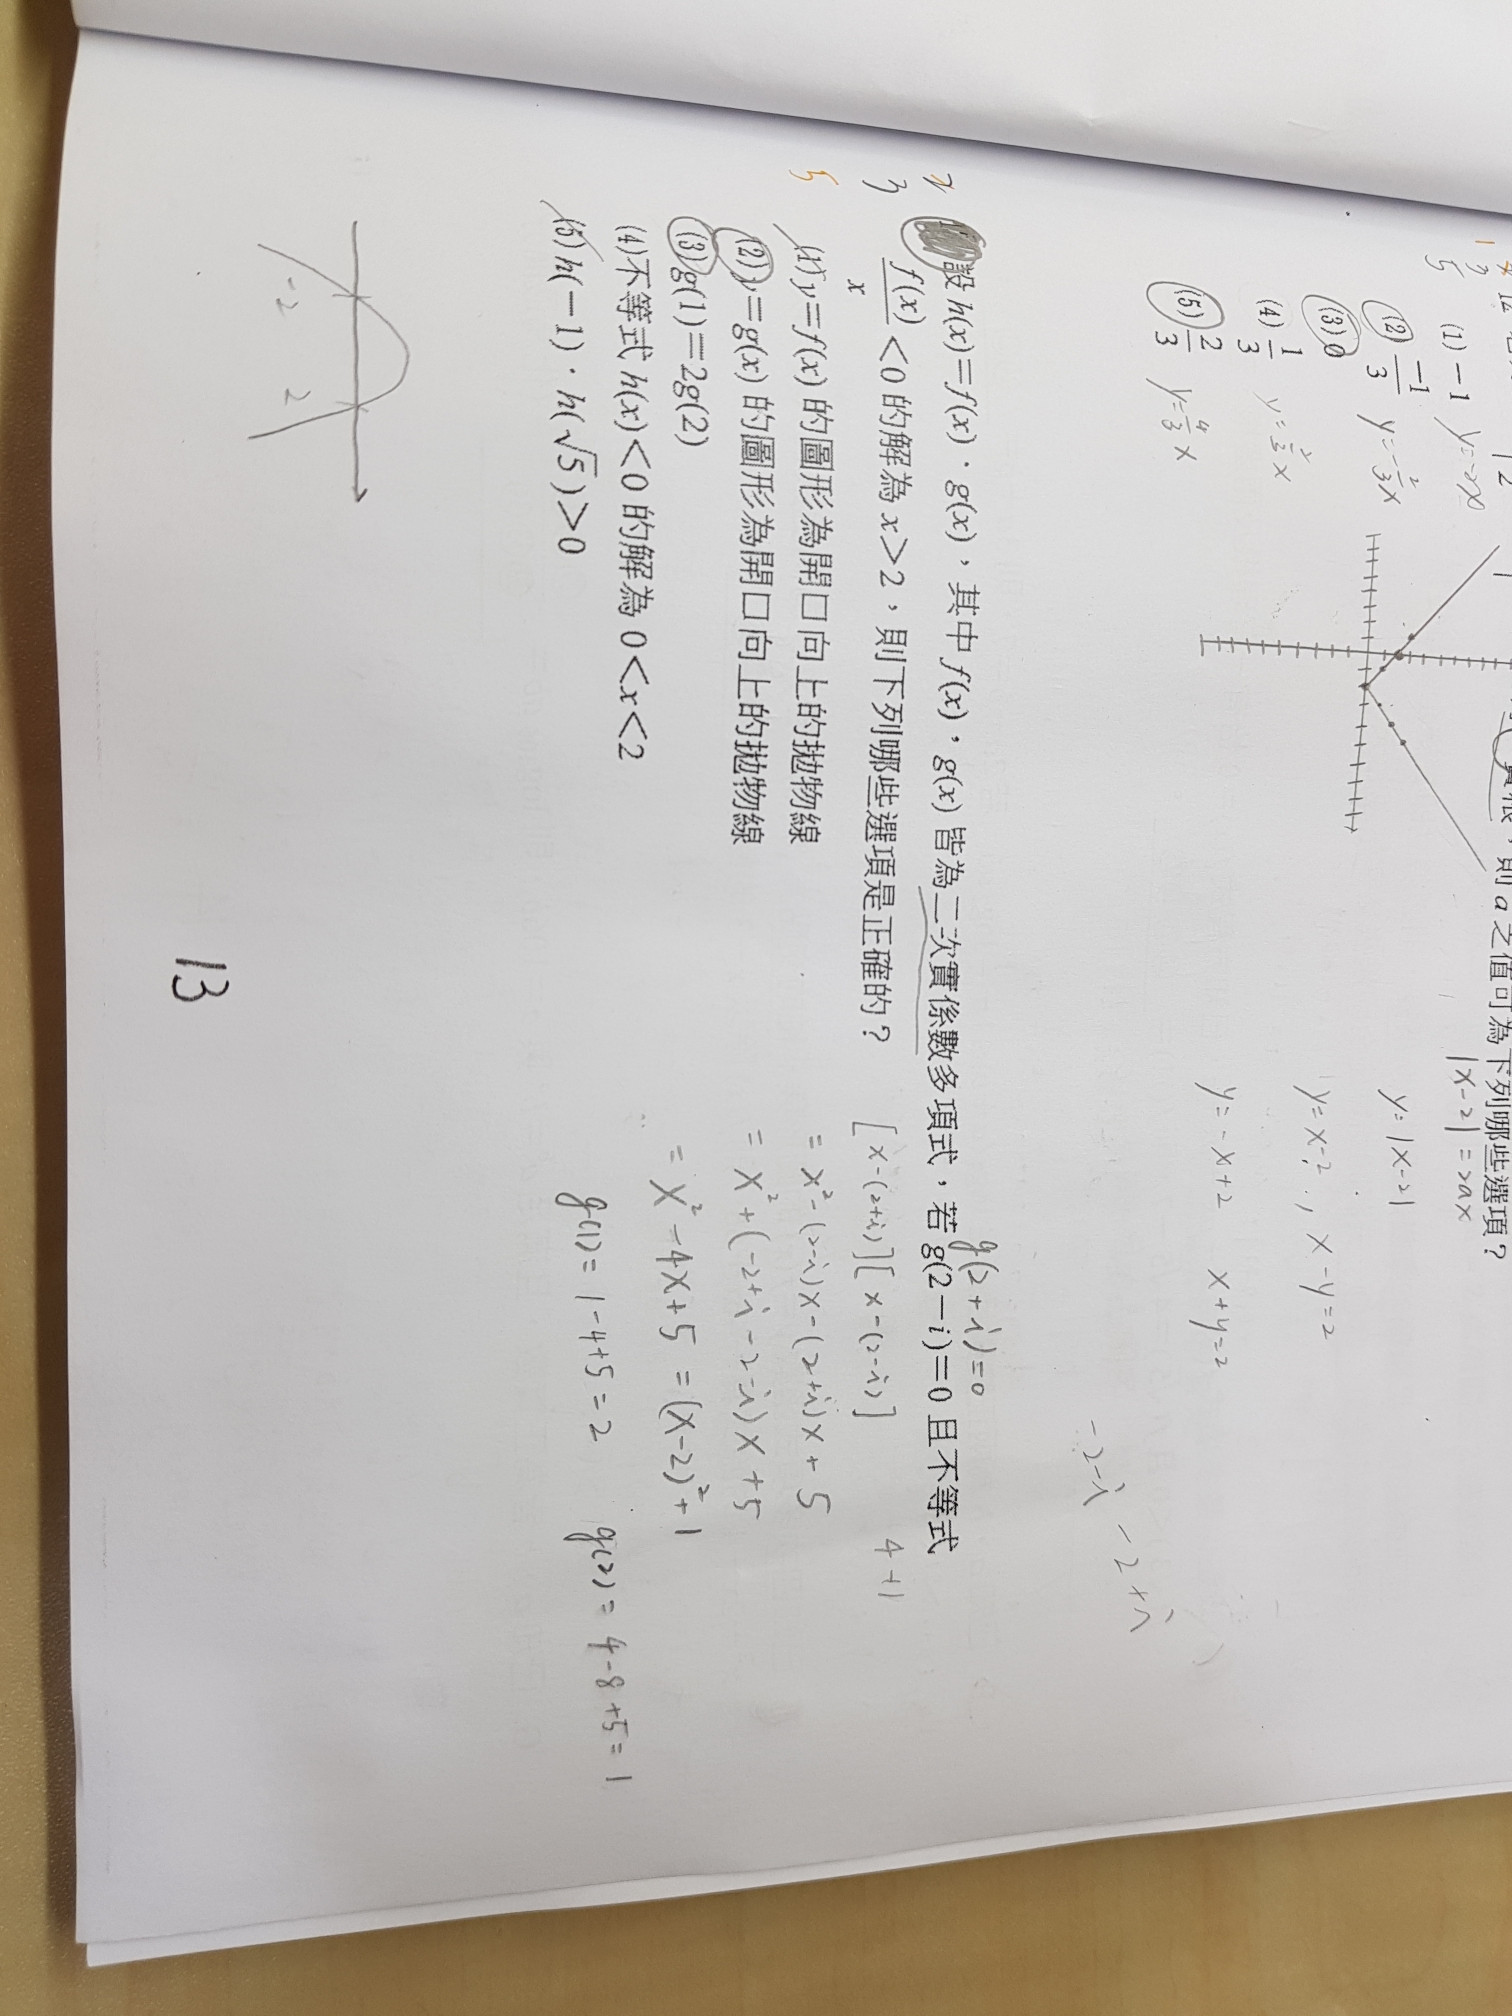 則 a 之值可為下列哪些選項？
|x-2|=2ax
(1) -1
y=-2x
(2) -1/3
y=-2/3x
(3) 0
(4) 1/3
y=2/3x
(5) 2/3
y=4/3x
y=|x-2|
y=x-2, x-y=2
y=-x+2 x+y=2
-2-i -2+i
2
3
5
g(2+i)=0
設 h(x)=f(x)．g(x)，其中 f(x)，g(x) 皆為二次實係數多項式，若 g(2-i)=0 且不等式
f(x)/x <0 的解為 x>2，則下列哪些選項是正確的？
(1) y=f(x) 的圖形為開口向上的拋物線
(2) y=g(x) 的圖形為開口向上的拋物線
(3) g(1)=2g(2)
(4) 不等式 h(x)<0 的解為 0<x<2
(5) h(-1)．h(√5)>0
[x-(2+i)][x-(2-i)]
4+1
=x²-(2-i)x-(2+i)x+5
=x²+(-2+i-2-i)x+5
=x²-4x+5=(x-2)²+1
g(1)=1-4+5=2 g(2)=4-8+5=1
-2 2
13